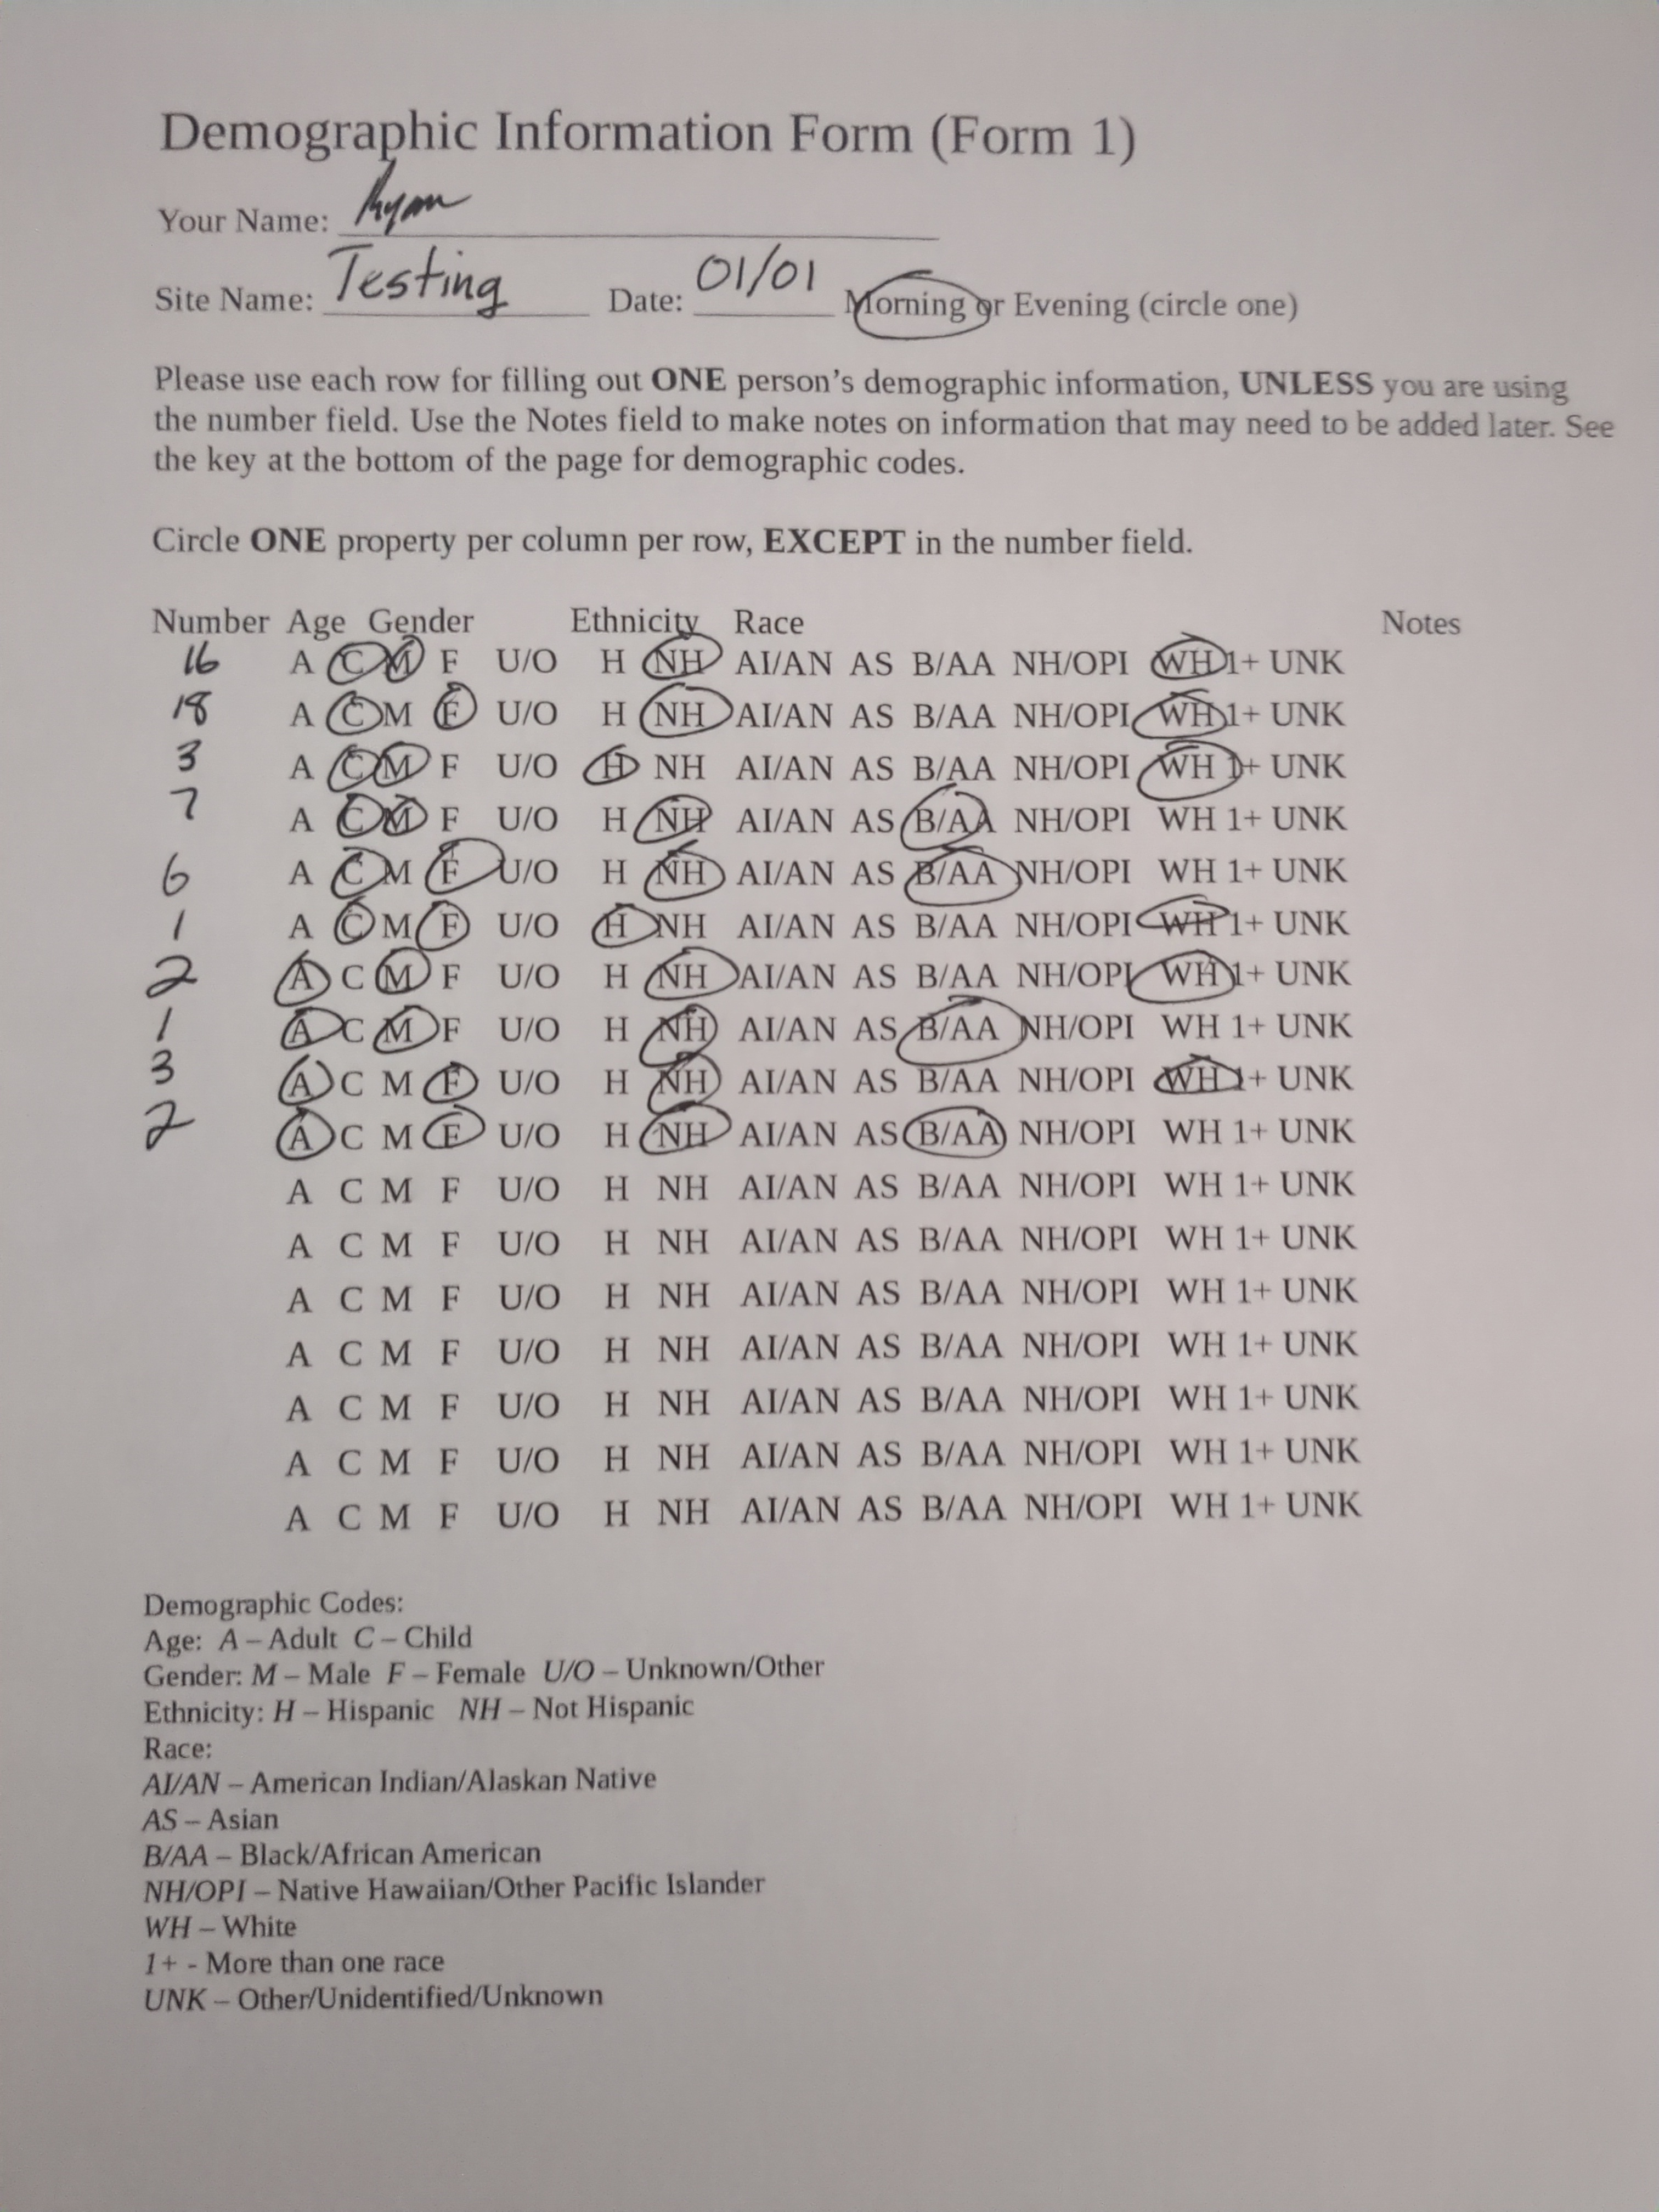 Demographic Information Form (Form 1)
Your Name: Ryan
Site Name: Testing Date: 01/01 Morning or Evening (circle one)
Please use each row for filling out ONE person's demographic information, UNLESS you are using
the number field. Use the Notes field to make notes on information that may need to be added later. See
the key at the bottom of the page for demographic codes.
Circle ONE property per column per row, EXCEPT in the number field.
Number Age Gender Ethnicity Race Notes
16 A C M F U/O H NH AI/AN AS B/AA NH/OPI WH 1+ UNK
18 A C M F U/O H NH AI/AN AS B/AA NH/OPI WH 1+ UNK
3 A C M F U/O H NH AI/AN AS B/AA NH/OPI WH 1+ UNK
7 A C M F U/O H NH AI/AN AS B/AA NH/OPI WH 1+ UNK
6 A C M F U/O H NH AI/AN AS B/AA NH/OPI WH 1+ UNK
1 A C M F U/O H NH AI/AN AS B/AA NH/OPI WH 1+ UNK
2 A C M F U/O H NH AI/AN AS B/AA NH/OPI WH 1+ UNK
1 A C M F U/O H NH AI/AN AS B/AA NH/OPI WH 1+ UNK
3 A C M F U/O H NH AI/AN AS B/AA NH/OPI WH 1+ UNK
2 A C M F U/O H NH AI/AN AS B/AA NH/OPI WH 1+ UNK
A C M F U/O H NH AI/AN AS B/AA NH/OPI WH 1+ UNK
A C M F U/O H NH AI/AN AS B/AA NH/OPI WH 1+ UNK
A C M F U/O H NH AI/AN AS B/AA NH/OPI WH 1+ UNK
A C M F U/O H NH AI/AN AS B/AA NH/OPI WH 1+ UNK
A C M F U/O H NH AI/AN AS B/AA NH/OPI WH 1+ UNK
A C M F U/O H NH AI/AN AS B/AA NH/OPI WH 1+ UNK
A C M F U/O H NH AI/AN AS B/AA NH/OPI WH 1+ UNK
Demographic Codes:
Age: A – Adult C – Child
Gender: M – Male F – Female U/O – Unknown/Other
Ethnicity: H – Hispanic NH – Not Hispanic
Race:
AI/AN – American Indian/Alaskan Native
AS – Asian
B/AA – Black/African American
NH/OPI – Native Hawaiian/Other Pacific Islander
WH – White
1+ - More than one race
UNK – Other/Unidentified/Unknown